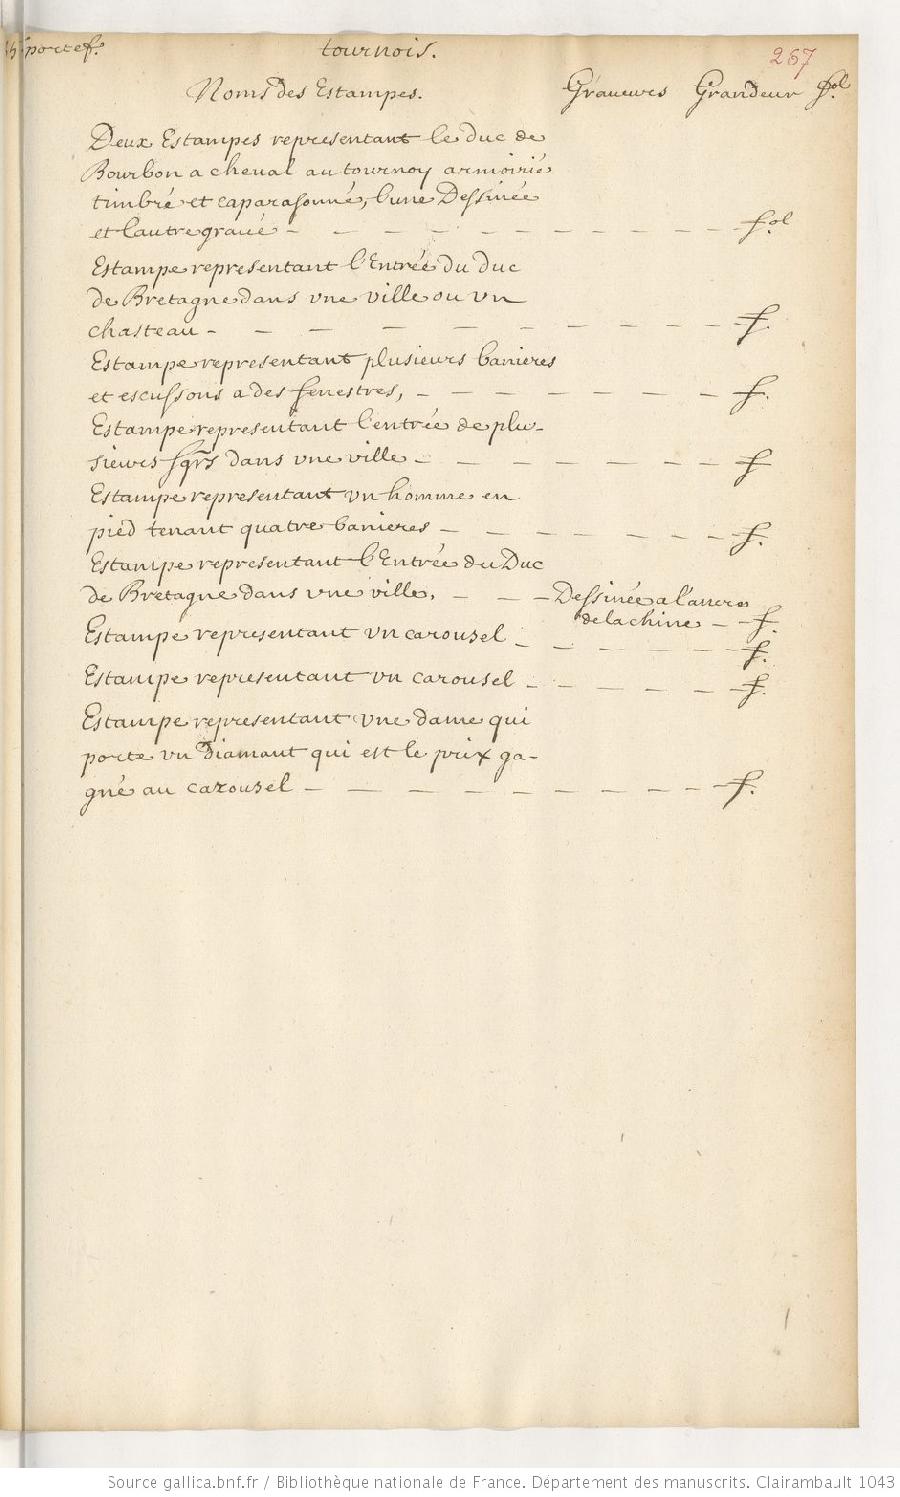 portef.
tournois.
267
Noms des Estampes. Graueurs Grandeur fol
Deux Estampes representant le Duc de
Bourbon a cheval au tournoy armoirié
timbré et caparasonné, l'une Dessinée
et lautre graué - - - - - - - - - fol.
Estampe representant l'Entrée du Duc
de Bretagne dans vne ville ou vn
chasteau - - - - - - - - - f.
Estampe representant plusieurs banieres
et escussons a des fenestres, - - - - - - - f.
Estampe representant l'entrée de plu-
sieurs sgrs dans vne ville - - - - - - - f
Estampe representant vn homme en
pied tenant quatre banieres - - - - - - - f.
Estampe representant l'Entrée du Duc
de Bretagne dans vne ville, - - - Dessinée a l'ancre
de la chine - - f.
Estampe representant vn carousel - - - - - - f.
Estampe representant vn carousel - - - - - - f.
Estampe representant vne dame qui
porte vn Diamant qui est le prix ga-
gné au carousel - - - - - - - - - f.
Source gallica.bnf.fr / Bibliothèque nationale de France. Département des manuscrits. Clairambault 1043